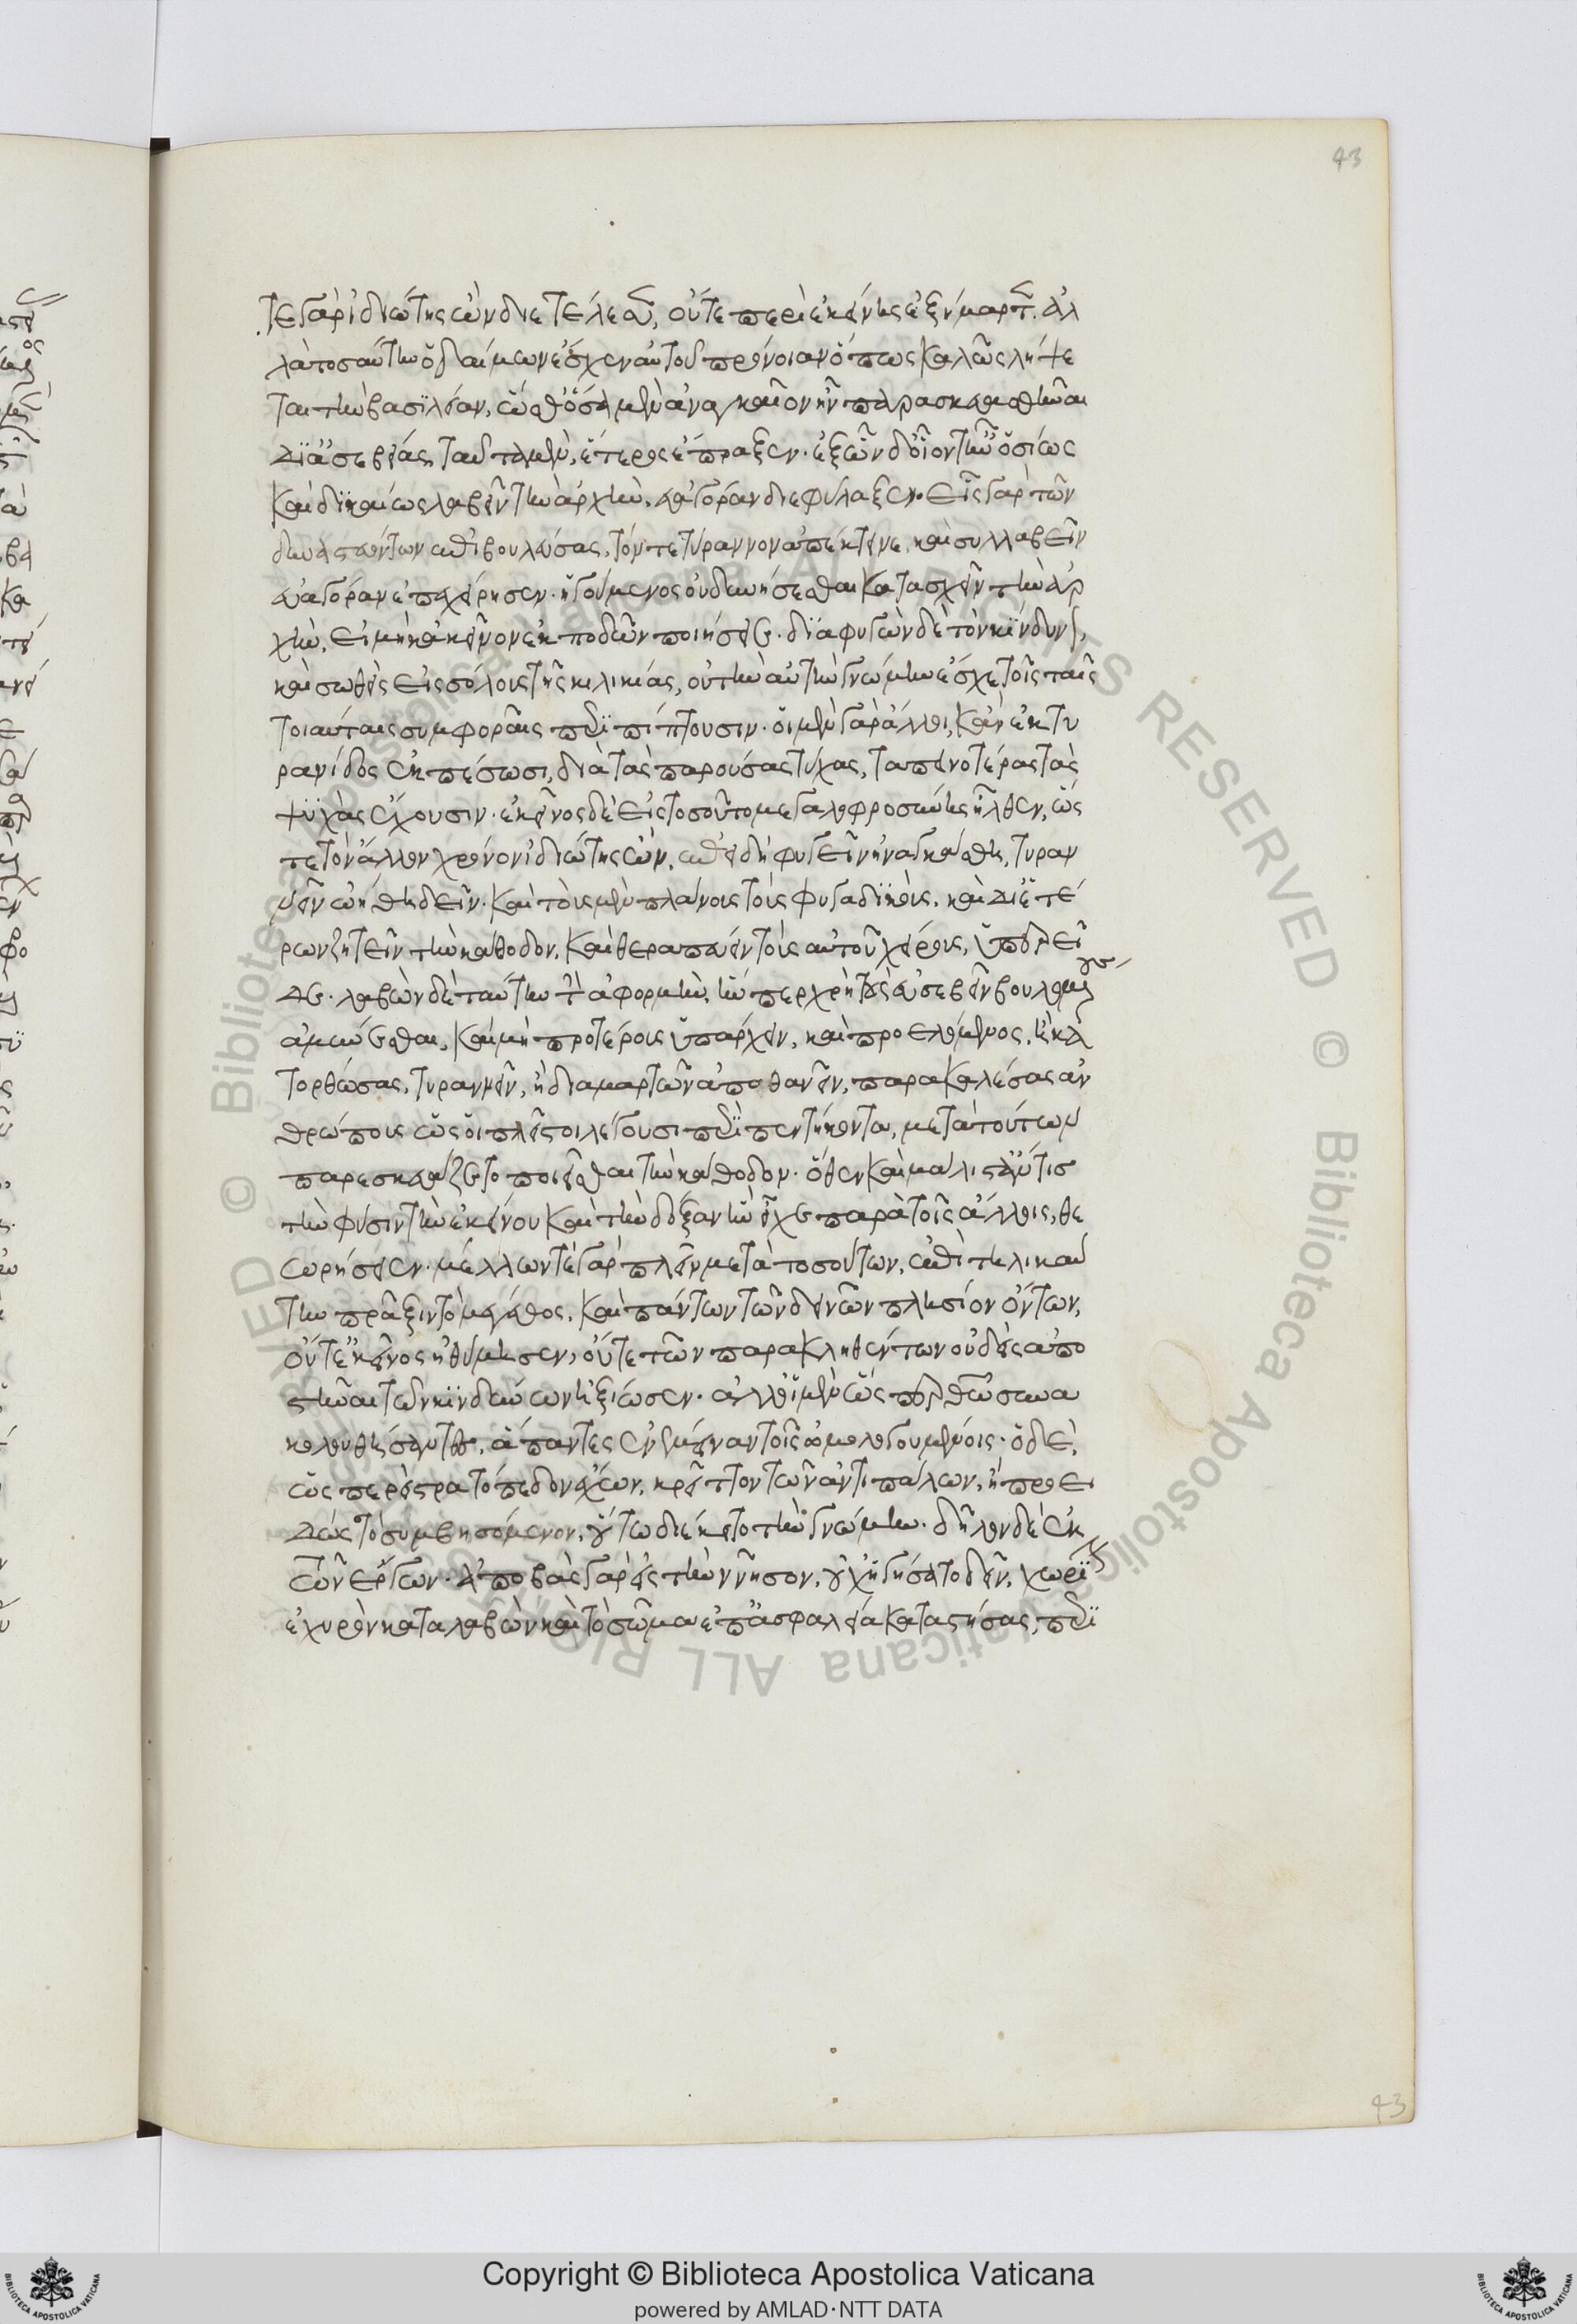 43
τε γὰρ ἰδιώτης ὢν διετέλεσεν, οὔτε περὶ ἐκείνης ἐξήμαρτεν. ἀλ
λὰ τοσαύτην ὁ δαίμων ἔσχεν αὐτοῦ πρόνοιαν ὅπως καλῶς λήψε
ται τὴν βασϊλείαν, ὥσθ' ὅσα μὲν ἀναγκαῖον ἦν παρασκευασθῆναι
δϊ' ἀσεβείας, ταῦτα μὲν, ἕτερος ἔπραξεν. ἐξ ὧν δ' οἷόν τ' ἦν ὁσίως
καὶ δϊκαίως λαβεῖν τὴν ἀρχὴν, εὐαγόραν διεφύλαξεν. εἷς γὰρ τῶν
δυναστευόντων ἐπιβουλεύσας, τόν τε τύραννον ἀπέκτεινε, καὶ συλλαβεῖν
εὐαγόραν ἐπεχείρησεν. ἡγούμενος οὐ δυνήσεσθαι κατασχεῖν τὴν ἀρ
χὴν, εἰ μὴ κἀκεῖνον ἐκ ποδῶν ποιήσειεν. δϊαφυγὼν δὲ τὸν κίνδυνον,
καὶ σωθεὶς εἰς σόλους τῆς κιλικίας, οὐ τὴν αὐτὴν γνώμην ἔσχε τοῖς ταῖς
τοιαύταις συμφοραῖς περιπίπτουσιν. οἱ μὲν γὰρ ἄλλοι, κἂν ἐκ τυ
ραννίδος ἐκπέσωσι, διὰ τὰς παρούσας τύχας, ταπεινοτέρας τὰς
ψυχὰς ἔχουσιν. ἐκεῖνος δὲ εἰς τοσοῦτο μεγαλοφροσύνης ἦλθεν, ὥς
τε τὸν ἄλλον χρόνον ἰδιώτης ὢν, ἐπειδὴ φυγεῖν ἠναγκάσθη, τυραν
νεῖν ᾠήθη δεῖν. καὶ τοὺς μὲν πλάνους τοὺς φυγαδϊκοὺς, καὶ δι' ἑτέ
ρων ζητεῖν τὴν κάθοδον, καὶ θεραπεύειν τοὺς αὐτοῦ χείρους, ὑπερεῖ
δεν. λαβὼν δὲ ταύτην τὴν ἀφορμὴν, ἥνπερ χρὴ τοὺς εὐσεβεῖν βουλομένους
ἀμύνεσθαι, καὶ μὴ προτέρους ὑπάρχειν, καὶ προελόμενος, ἢ κα
τορθώσας, τυραννεῖν, ἢ διαμαρτὼν ἀποθανεῖν, παρακαλέσας ἀν
θρώπους ὡς οἱ πλεῖστοι λέγουσι περὶ πεντήκοντα, μετὰ τούτων
παρεσκευάζετο ποιεῖσθαι τὴν κάθοδον. ὅθεν καὶ μάλιστ' ἄν τις
τὴν φύσιν τὴν ἐκείνου καὶ τὴν δόξαν ἣν εἶχε παρὰ τοῖς ἄλλοις, θε
ωρήσειεν. μελλόντων γὰρ πλεῖν μετὰ τοσούτων, ἐπὶ τηλικαύ
την πρᾶξιν τὸ μέγεθος, καὶ πάντων τῶν δεινῶν πλησίον ὄντων,
οὔτ' ἐκεῖνος ἠθύμησεν, οὔτε τῶν παρακληθέντων οὐδεὶς ἀπο
στῆναι τῶν κινδύνων ἠξίωσεν. ἀλλ' οἱ μὲν ὥσπερ θεῷ συνα
κολουθήσαντες, ἅπαντες ἐνέμειναν τοῖς ὡμολογουμένοις. ὁ δὲ,
ὥσπερ ἢ στρατόπεδον ἔχων, κρεῖττον τῶν ἀντιπάλων, ἢ προει
δὼς τὸ συμβησόμενον, οὕτω διέκειτο τὴν γνώμην. δῆλον δὲ ἐκ
τῶν ἔργων. ἀποβὰς γὰρ εἰς τὴν νῆσον, οὐχ ἡγήσατο δεῖν, χωρίον
ἐχυρὸν καταλαβὼν καὶ τὸ σῶμα ἐπ' ἀσφαλεία καταστήσας, περϊ
43
Copyright © Biblioteca Apostolica Vaticana
powered by AMLAD·NTT DATA